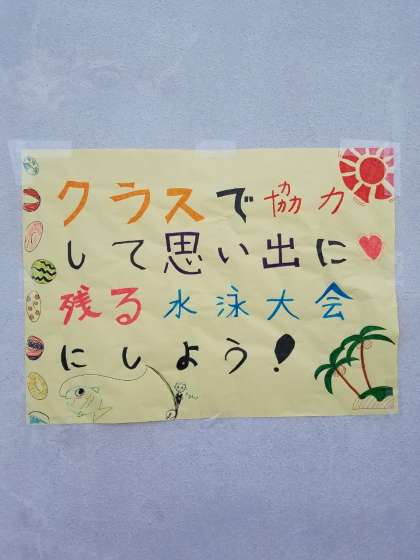 クラスで協力
して思い出に
残る水泳大会
にしよう!